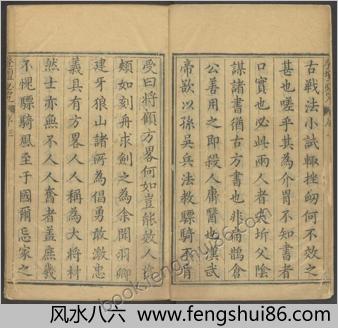 古戰法小試輒挫衂何不效之
甚也嗟乎其為介胄不知書者
口實也必此兩人者矣圻父陰
謀諸書猶古方書也非倚鵲倉
公善用之即殺人庸醫也漢武
帝欲以孫吳兵法教驃騎不肯
受曰將顧方畧何如豈能效人
頰如刻舟求劍之為余聞羽卿
建牙狼山諸祠為倡勇敢激忠
義具有方畧人人稱為大將材
然士亦無不人人奮者蓋庶幾
不愧驃騎風至于國爾忘家之
book.fengshui86.com
风水八六 | www.fengshui86.com